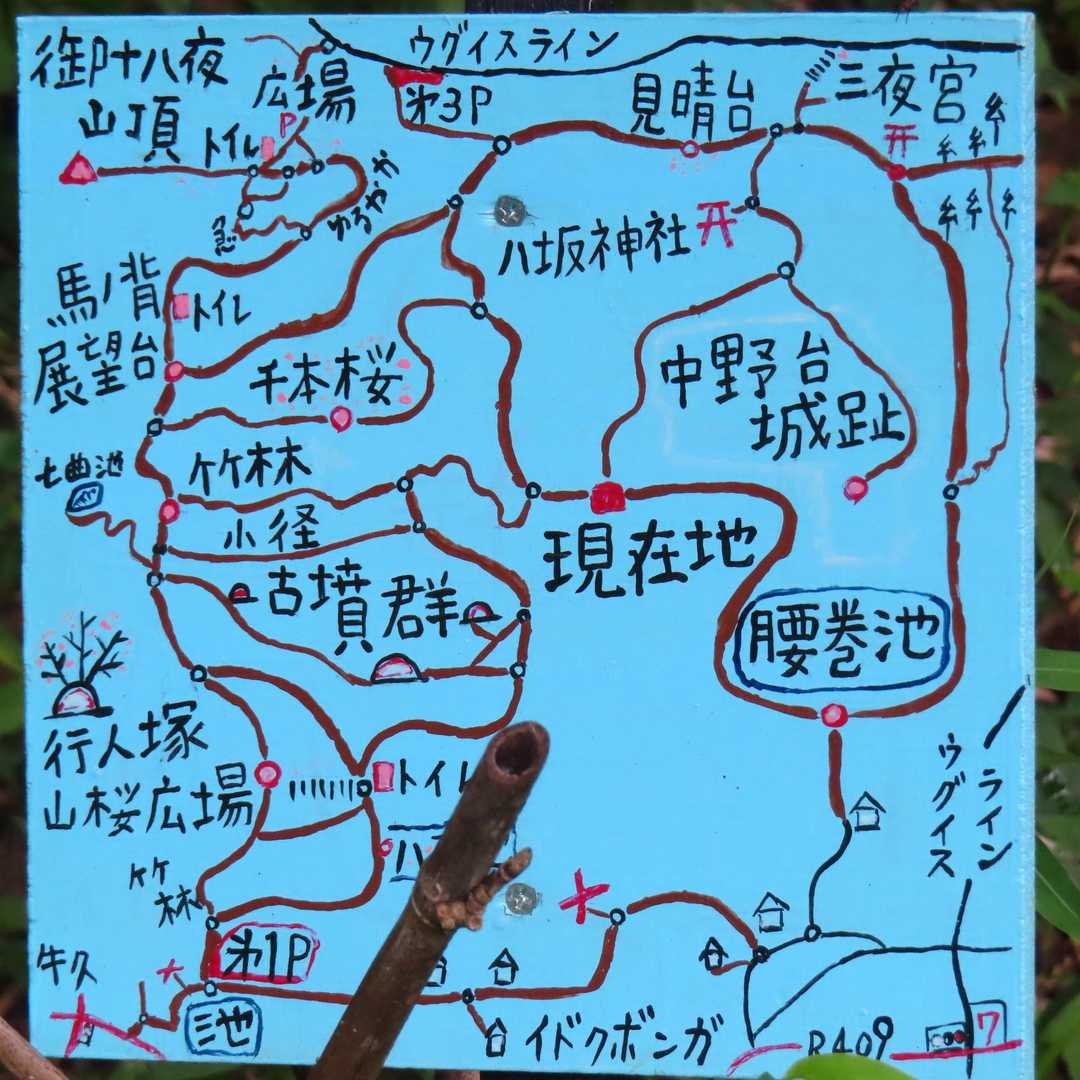 ウグイスライン
御叶八夜
山頂
広場
P
トイレ
才3P
見晴台
三夜宮
急
ゆるやか
八坂神社
馬ノ背
展望台
トイレ
千本桜
中野台
城趾
七曲池
竹林
小径
現在地
古墳群
腰巻池
行人塚
山桜広場
トイレ
ウグイス
ライン
竹林
才1P
牛久
池
イドクボンガ
R409
7